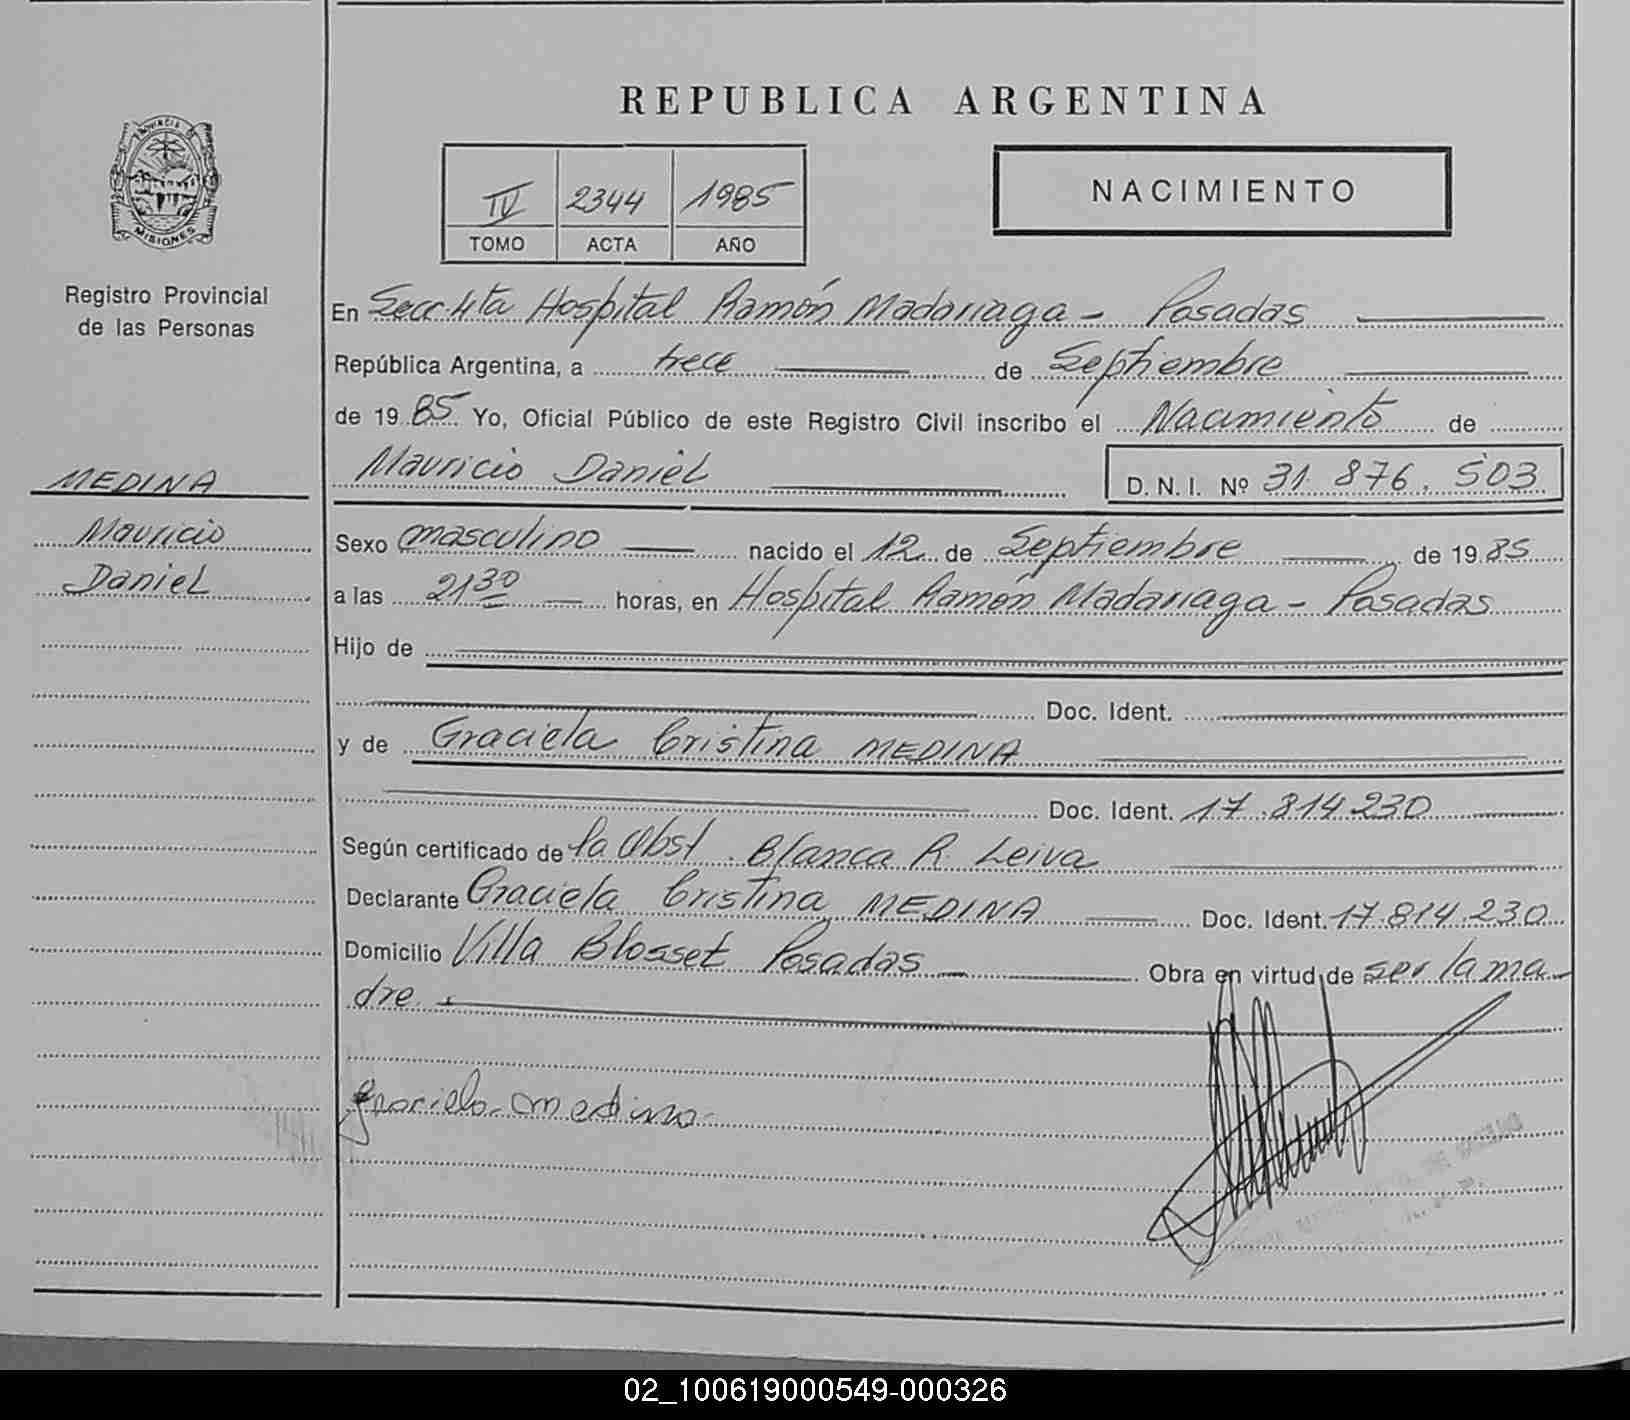 REPUBLICA ARGENTINA
PROVINCIA DE
MISIONES
IV 2344 1985
TOMO ACTA AÑO
NACIMIENTO
Registro Provincial
de las Personas
En Secc 4ta Hospital Ramón Madariaga - Posadas
República Argentina, a trece de Septiembre
de 19 85 Yo, Oficial Público de este Registro Civil inscribo el Nacimiento de
Mauricio Daniel D. N. I. Nº 31 876. 503
MEDINA
Mauricio
Daniel
Sexo masculino nacido el 12 de Septiembre de 19 85
a las 21 30 horas, en Hospital Ramón Madariaga - Posadas
Hijo de
Doc. Ident.
y de Graciela Cristina MEDINA
Doc. Ident. 17.814.230
Según certificado de la Obst. Blanca R. Leiva
Declarante Graciela Cristina MEDINA Doc. Ident. 17.814.230
Domicilio Villa Blosset Posadas Obra en virtud de ser la ma-
dre.
graciela medina
02_100619000549-000326